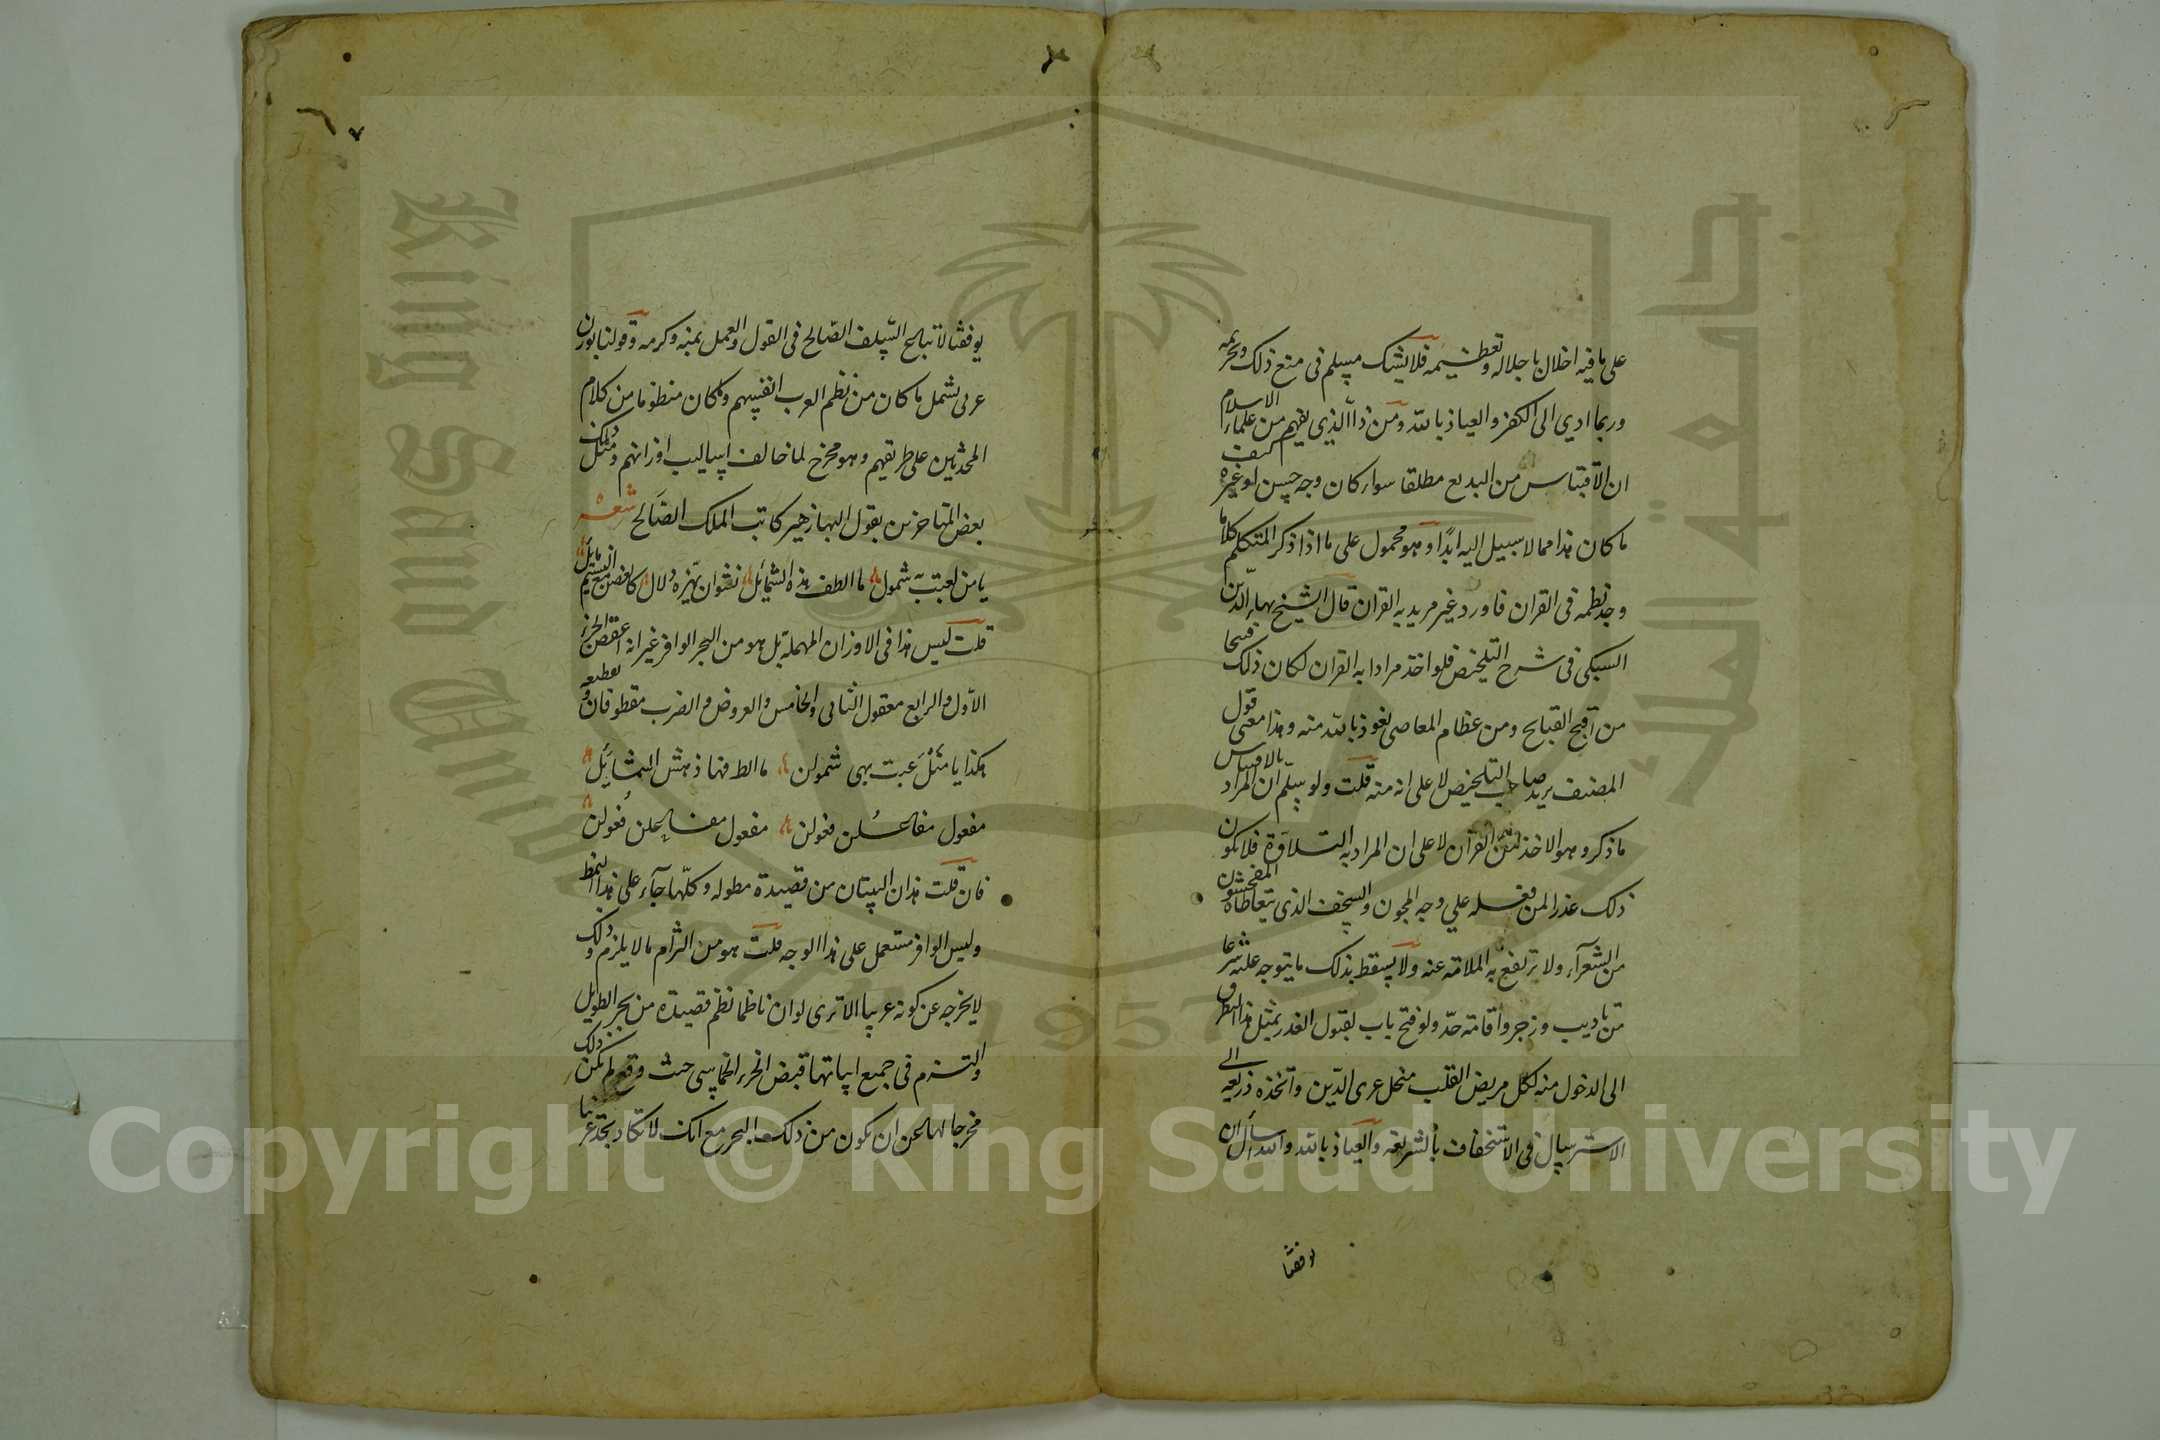 على ما فيه اخلال باجلاله وتعظيمه فلا يشك مسلم فى منع ذلك وتحريمه
وربما ادى الى الكفر والعياذ بالله ومن ذا الذي يفهم من علماء الاسلام
ان الاقتباس من البديع مطلقا سواء كان وجه حسن لو غيره كيف
ما كان هذا مما لا سبيل اليه ابدًا وهو محمول على ما اذا ذكر المتكلم كلاما
وجد نظمه فى القران فاورد غير مريد به القران قال الشيخ بهاء الدين
السبكى فى شرح التلخيص فلو اخذ مرادا به القران لكان ذلك قبيحا
من اقبح القبايح ومن عظام المعاصى نعوذ بالله منه وهذا معنى قول
المصنف يريد صاحب التلخيص لا على انه منه قلت ولو سلم ان المراد بالاقتباس
ما ذكر وهو الاخذ من القرآن لا على ان المراد به التلاوة فلا يكون
ذلك عذرا لمن فعله علي وجه المجون والسخف الذى يتعاطاه المفحشون
من الشعرآء ولا ترتفع به الملامة عنه ولا يسقط بذلك ما يتوجه عليه شرعا
من تاديب وزجر واقامة حدّ ولو فتح باب لقبول العذر بمثل هذا لتطرق
الى الدخول منه لكل مريض القلب منحل عرى الدّين واتخذه ذريعه الى
الاسترسال فى الاستخفاف بالشريعه والعياذ بالله والله اسأل ان
يوفقنا
يوفقنا لاتباع السلف الصّالح فى القول والعمل بمنه وكرمه وقولنا بوزن
عربى يشمل ما كان من نظم العرب انفسهم وما كان منظوما من كلام
المحدثين على طريقهم وهو مخرج لما خالف اساليب اوزانهم ومثل ذلك
بعض المتاخرين بقول البها زهير كاتب الملك الصالح شعر
يا من لعبت به شمول ما الطف هذه الشمائل نشوان يهزه دلال كالغصن مع النسيم مايل
قلت ليس هذا فى الاوزان المهملة بل هو من البحر الوافر غير انه اعقص الجزء
الاوّل والرابع معقول الثانى والخامس والعروض والضرب مقطوفان وتقطيعه
هكذا يا مثل عبت بهى شمولن ما الط فهاذ هش الشمائل
مفعول مفاعلن فعولن مفعول مفاعلن فعولن
فان قلت هذان البيتان من قصيدة مطوله وكلّها جآء على هذا النمط
وليس الوافر مستعمل على هذا الوجه قلت هو من التزام ما لا يلزم وذلك
لا يخرجه عن كونه عربيا الا ترى لو ان ناظما نظم قصيدة من بحر الطويل
والتزم فى جميع ابياتها قبض الجزء الخماسى حيث وقع لم يكن ذلك
مخرجا لها عن ان يكون من ذلك البحر مع انك لا تكاد تجد عربيا
King Saud University
جامعة الملك
1957
Copyright © King Saud University